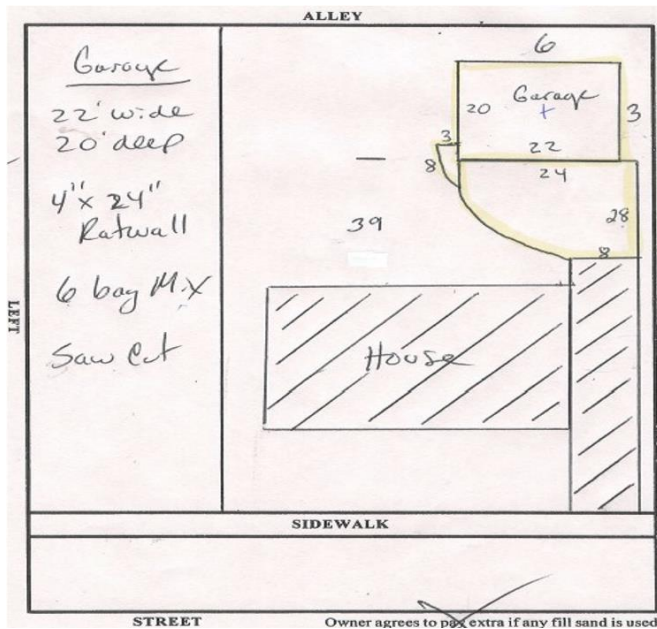 ALLEY
Garage
22' wide
20' deep
4" x 24"
Ratwall
6 bag Mix
Saw Cut
6
20 Garage 3
22
3
8
24
28
8
39
House
LEFT
SIDEWALK
STREET
Owner agrees to pay extra if any fill sand is used